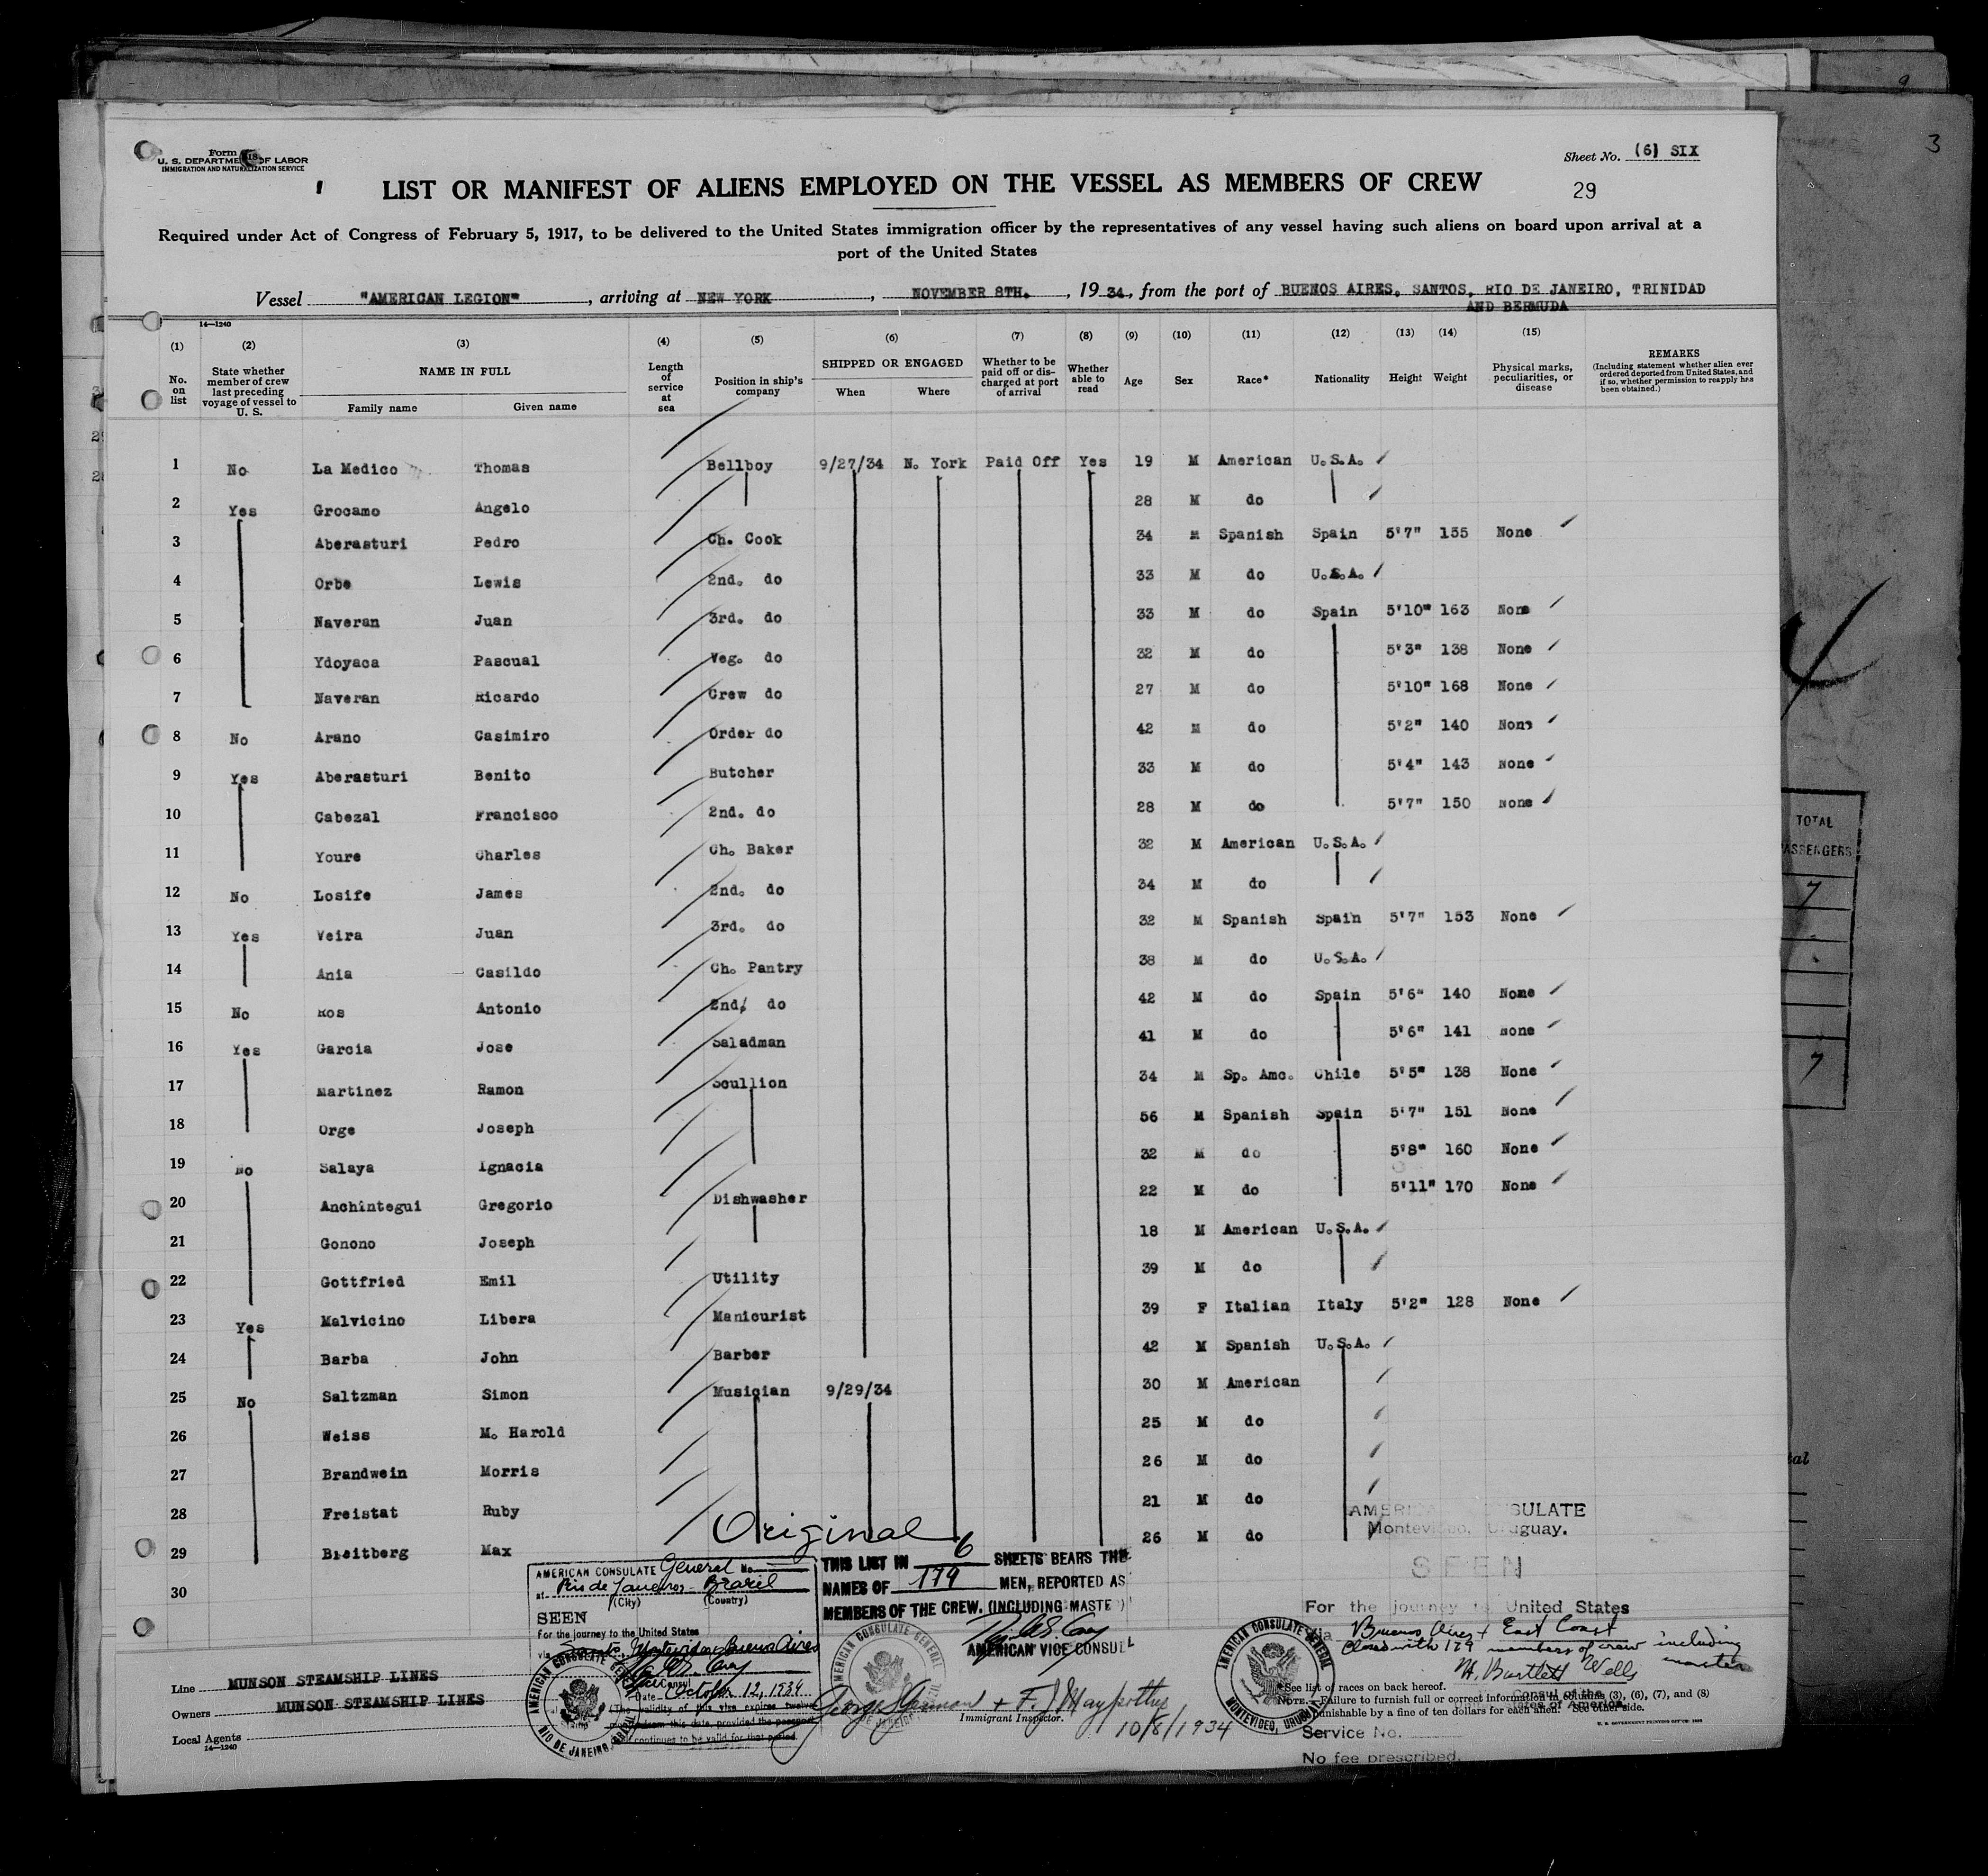 Form
U. S. DEPARTMENT OF LABOR
IMMIGRATION AND NATURALIZATION SERVICE
Sheet No. (6) SIX
29
LIST OR MANIFEST OF ALIENS EMPLOYED ON THE VESSEL AS MEMBERS OF CREW
Required under Act of Congress of February 5, 1917, to be delivered to the United States immigration officer by the representatives of any vessel having such aliens on board upon arrival at a
port of the United States
Vessel "AMERICAN LEGION", arriving at NEW YORK, NOVEMBER 8TH., 1934, from the port of BUENOS AIRES, SANTOS, RIO DE JANEIRO, TRINIDAD
AND BERMUDA
14—1240
(1) (2) (3) (4) (5) (6) (7) (8) (9) (10) (11) (12) (13) (14) (15)
No. on list
State whether member of crew last preceding voyage of vessel to U. S.
NAME IN FULL
Family name Given name
Length of service at sea
Position in ship's company
SHIPPED OR ENGAGED
When Where
Whether to be paid off or discharged at port of arrival
Whether able to read
Age Sex Race* Nationality Height Weight
Physical marks, peculiarities, or disease
REMARKS
(Including statement whether alien ever ordered deported from United States, and if so, whether permission to reapply has been obtained.)
1 No La Medico Thomas Bellboy 9/27/34 N. York Paid Off Yes 19 M American U.S.A.
2 Yes Grocamo Angelo 28 M do
3 Aberasturi Pedro Ch. Cook 34 M Spanish Spain 5'7" 155 None
4 Orbe Lewis 2nd. do 33 M do U.S.A.
5 Naveran Juan 3rd. do 33 M do Spain 5'10" 163 None
6 Ydoyaca Pascual Veg. do 32 M do 5'3" 138 None
7 Naveran Ricardo Crew do 27 M do 5'10" 168 None
8 No Arano Casimiro Order do 42 M do 5'2" 140 None
9 Yes Aberasturi Benito Butcher 33 M do 5'4" 143 None
10 Cabezal Francisco 2nd. do 28 M do 5'7" 150 None
11 Youre Charles Ch. Baker 32 M American U.S.A.
12 No Losife James 2nd. do 34 M do
13 Yes Veira Juan 3rd. do 32 M Spanish Spain 5'7" 153 None
14 Ania Casildo Ch. Pantry 38 M do U.S.A.
15 No Ros Antonio 2nd. do 42 M do Spain 5'6" 140 None
16 Yes Garcia Jose Saladman 41 M do 5'6" 141 None
17 Martinez Ramon Scullion 34 M Sp. Amc. Chile 5'5" 138 None
18 Orge Joseph 56 M Spanish Spain 5'7" 151 None
19 No Salaya Ignacia 32 M do 5'8" 160 None
20 Anchintegui Gregorio Dishwasher 22 M do 5'11" 170 None
21 Gonono Joseph 18 M American U.S.A.
22 Gottfried Emil Utility 39 M do
23 Yes Malvicino Libera Manicurist 39 F Italian Italy 5'2" 128 None
24 Barba John Barber 42 M Spanish U.S.A.
25 No Saltzman Simon Musician 9/29/34 30 M American
26 Weiss M. Harold 25 M do
27 Brandwein Morris 26 M do
28 Freistat Ruby 21 M do
29 Breitberg Max 26 M do
30
Original
THIS LIST IN 6 SHEETS BEARS THE
NAMES OF 179 MEN, REPORTED AS
MEMBERS OF THE CREW. (INCLUDING MASTER)
AMERICAN VICE CONSUL
AMERICAN CONSULATE General No.
at Rio de Janeiro - Brazil
(City) (Country)
SEEN
For the journey to the United States
via Santos, Montevideo, Buenos Aires
Date October 12, 1934
The validity of this visa expires twelve
from this date, provided the passport
continues to be valid for that period.
AMERICAN CONSULATE GENERAL
RIO DE JANEIRO, BRAZIL
AMERICAN CONSULATE GENERAL
AMERICAN CONSULATE
Montevideo, Uruguay.
SEEN
For the journey to United States
via Buenos Aires + East Coast
Closed with 179 members of crew including
master
H. Bartlett Wells
Consul of the
States of America.
AMERICAN CONSULATE GENERAL
MONTEVIDEO, URUGUAY
Line MUNSON STEAMSHIP LINES
Owners MUNSON STEAMSHIP LINES
Local Agents
14—1240
Immigrant Inspector.
10/8/1934
*See list of races on back hereof.
NOTE.—Failure to furnish full or correct information in columns (3), (6), (7), and (8)
is punishable by a fine of ten dollars for each alien. See other side.
Service No.
No fee prescribed.
3
TOTAL
PASSENGERS
7
7